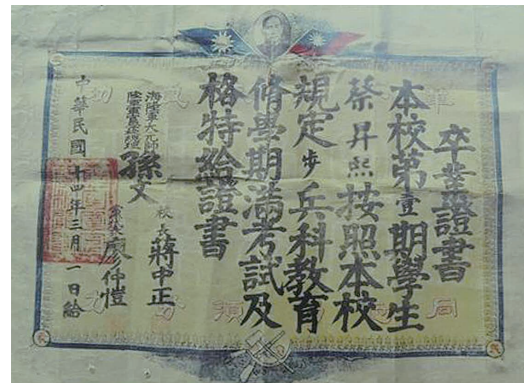 卒業證書
本校第壹期學生
蔡昇熙按照本校
規定步兵科教育
脩學期滿考試及
格特給證書
海陸軍大元帥
陸軍軍官學校總理
孫文
校長 蔣中正
黨代表 廖仲愷
中華民國十四年三月一日給